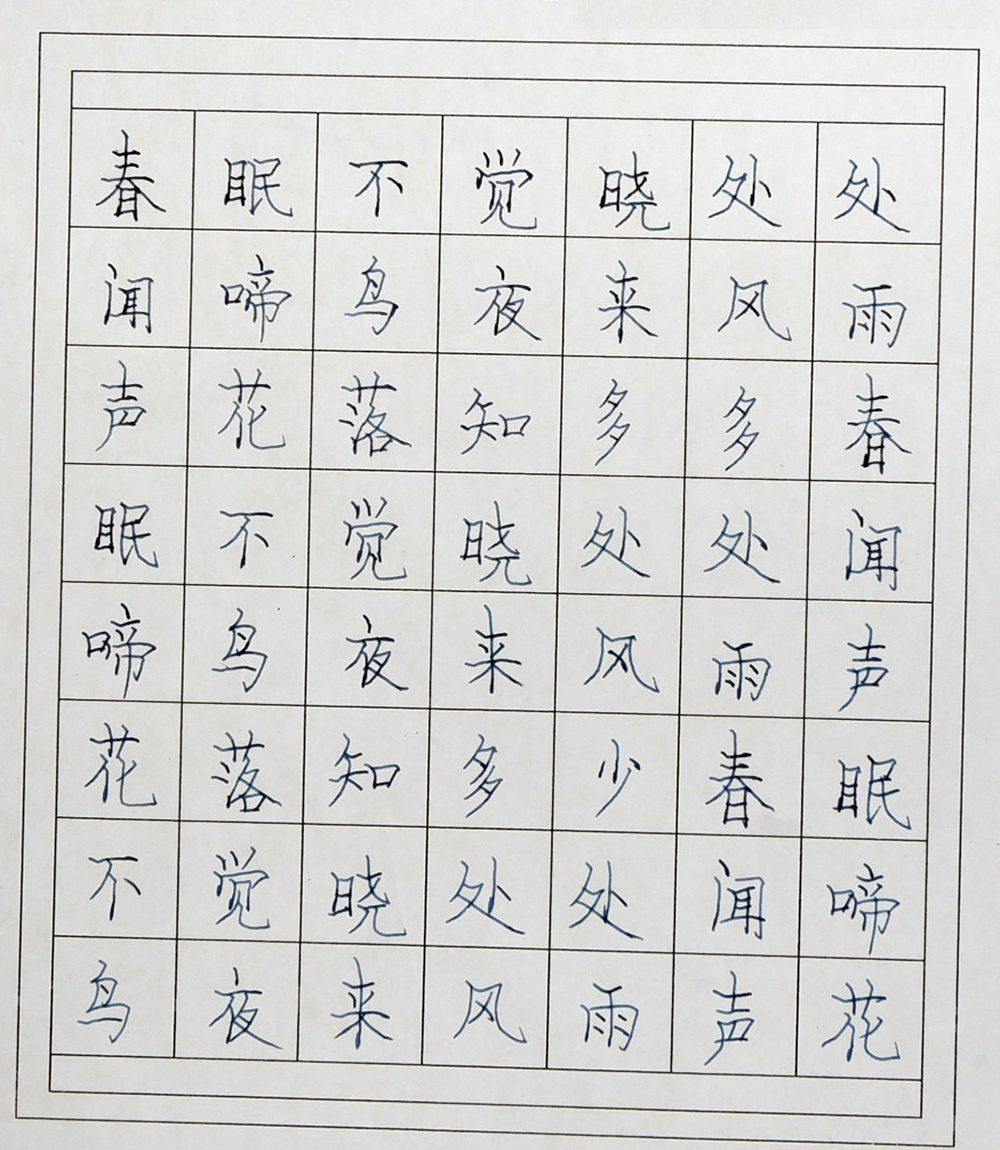 春眠不觉晓处处
闻啼鸟夜来风雨
声花落知多多春
眠不觉晓处处闻
啼鸟夜来风雨声
花落知多少春眠
不觉晓处处闻啼
鸟夜来风雨声花